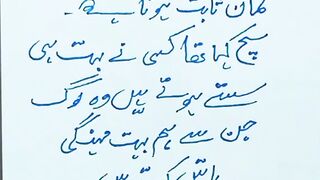 گمان ثابت ہوتا ہے۔
سچ کہا تھا کسی نے بہت ہی
سستے ہوتے ہیں وہ لوگ
جن سے ہم بہت مہنگی